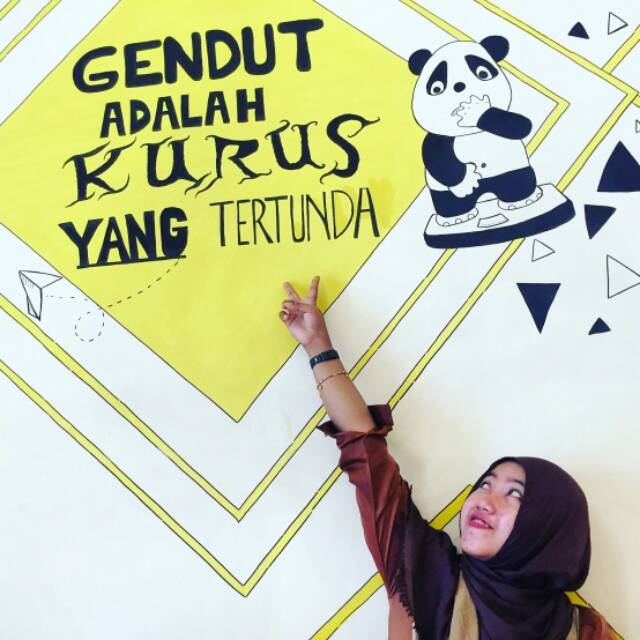 GENDUT
ADALAH
KURUS
YANG TERTUNDA